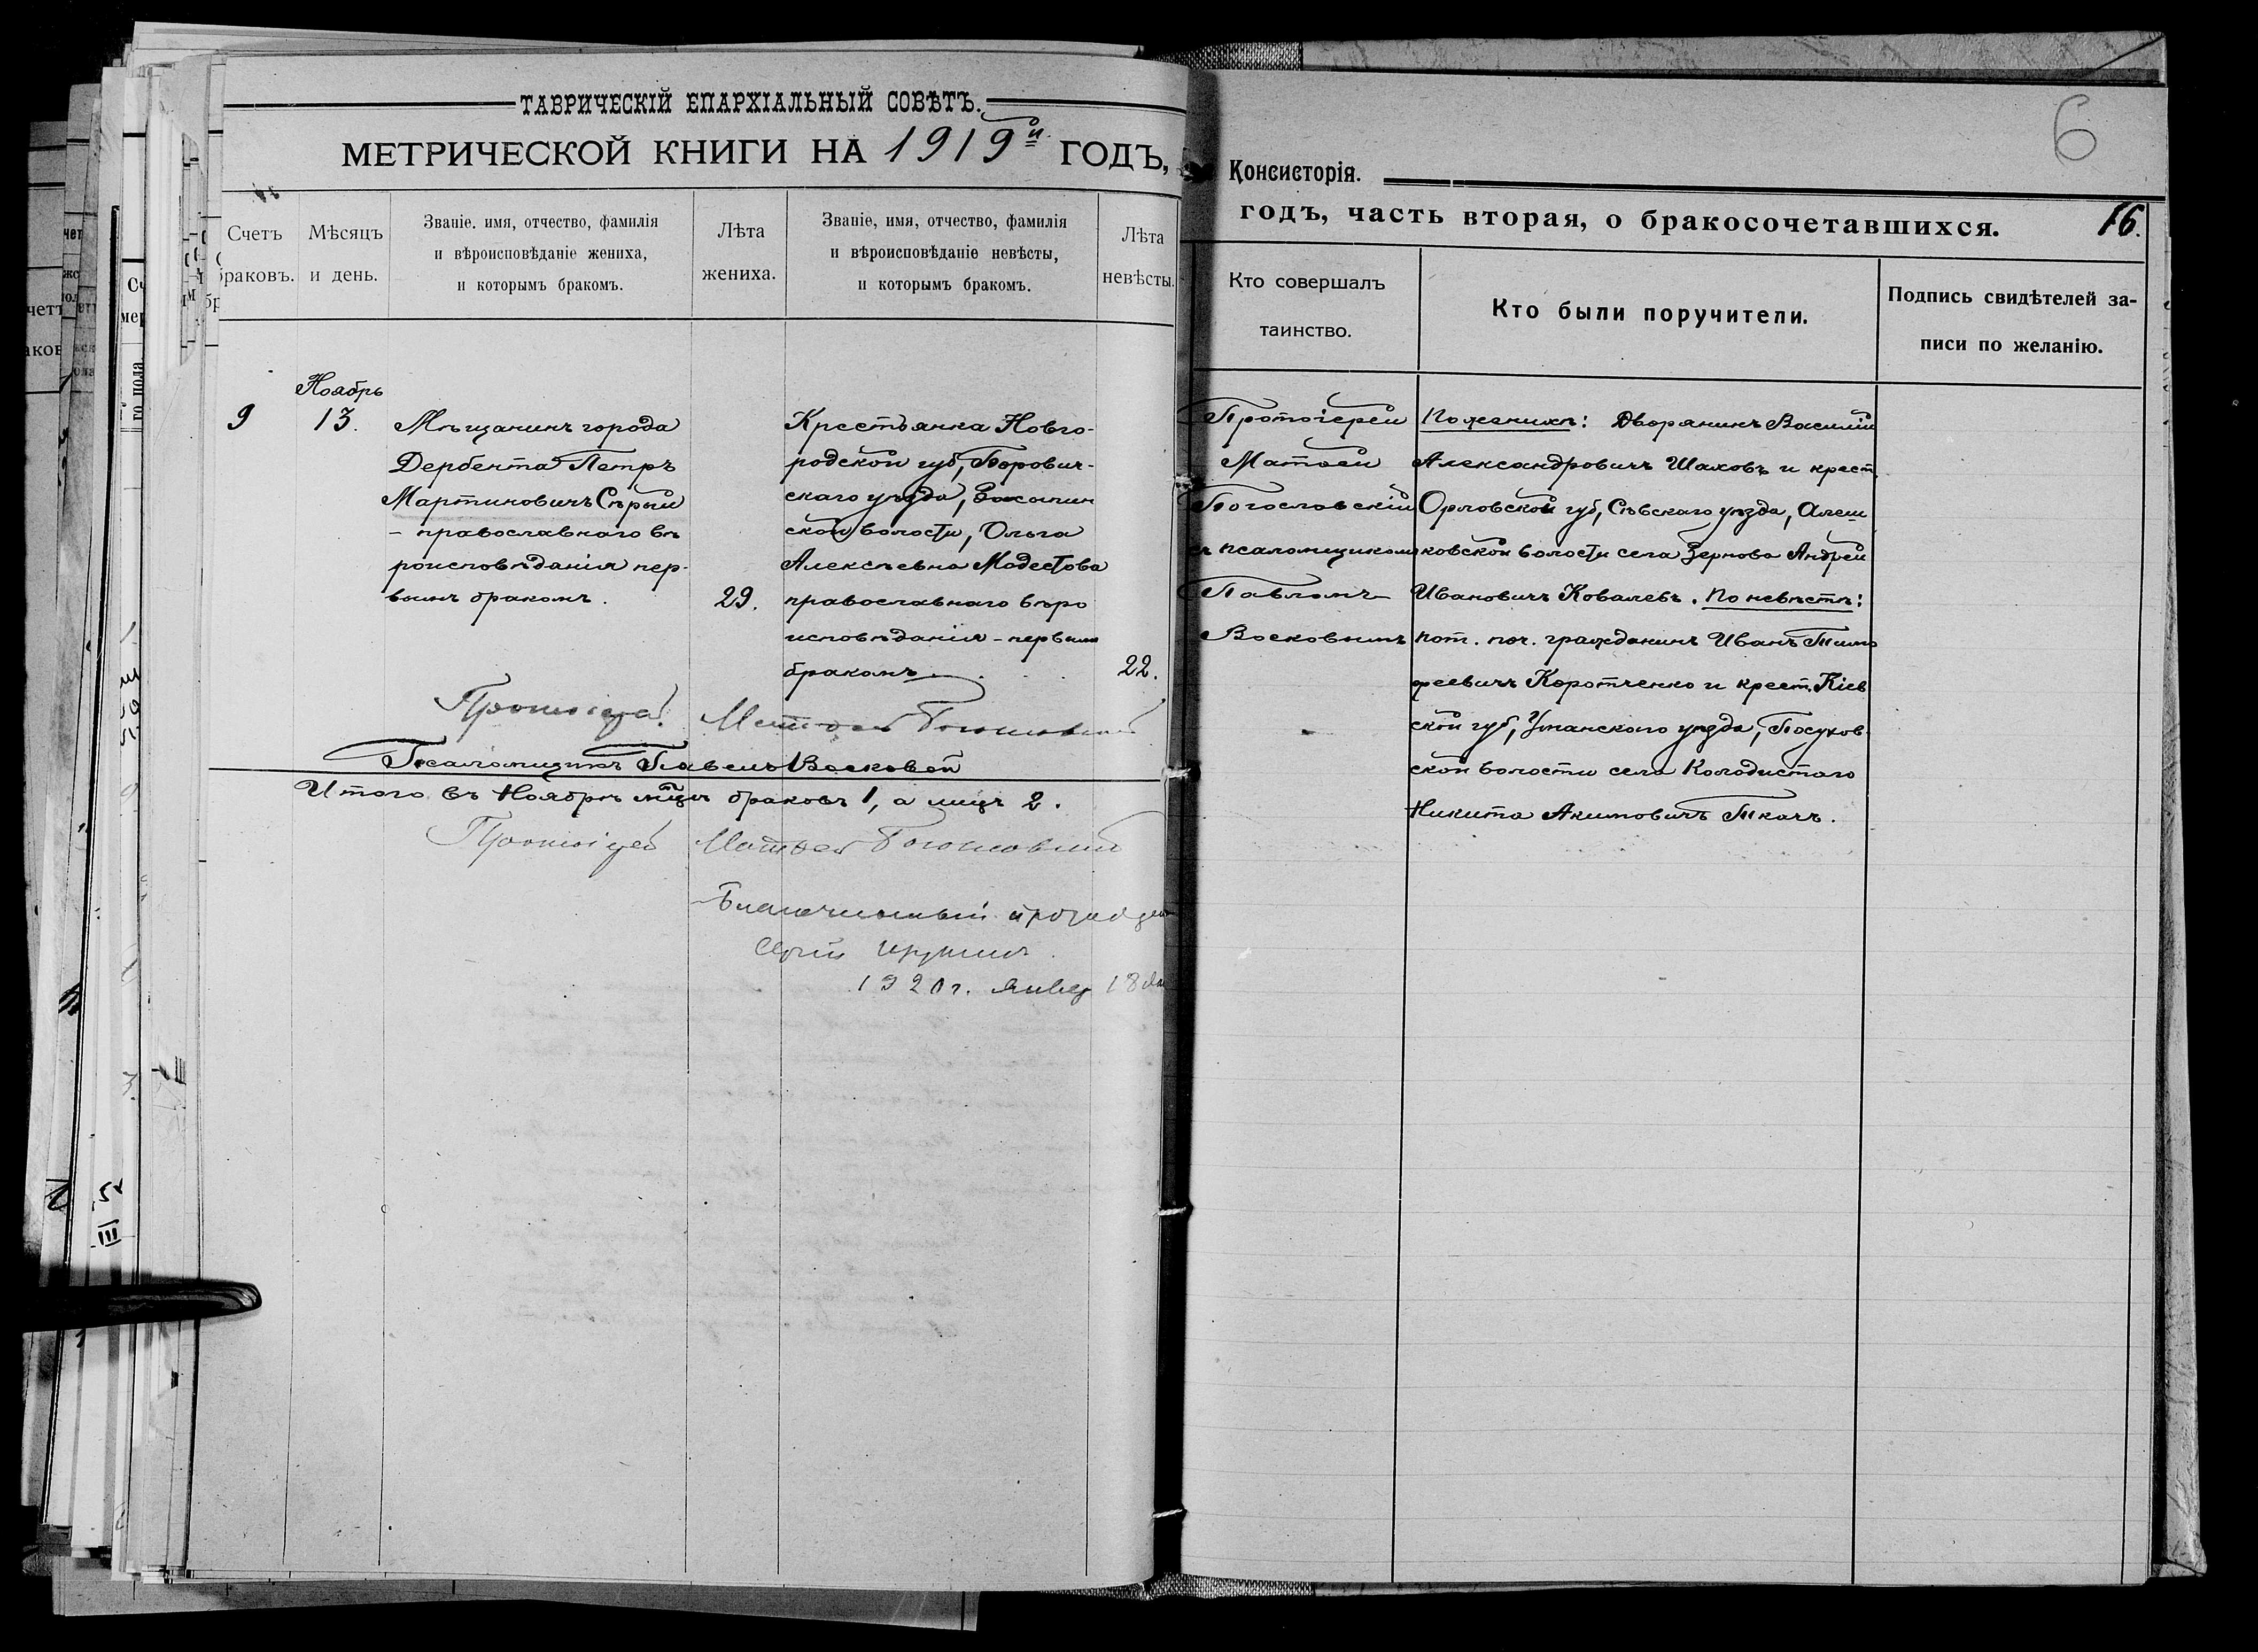 ТАВРИЧЕСКІЙ ЕПАРХІАЛЬНЫЙ СОВѢТЪ.
МЕТРИЧЕСКОЙ КНИГИ НА 1919й ГОДЪ,
Счетъ браковъ.
Мѣсяцъ и день.
Званіе. имя, отчество, фамилія
и вѣроисповѣданіе жениха,
и которымъ бракомъ.
Лѣта
жениха.
Званіе, имя, отчество, фамилія
и вѣроисповѣданіе невѣсты,
и которымъ бракомъ.
Лѣта
невѣсты.
Ноябрь
9
13.
Мѣщанинъ города
Дербента Петръ
Мартиновичъ Сѣрый
– православнаго вѣ
роисповѣданія пер-
вымъ бракомъ.
29.
Крестьянка Новго-
родской губ, Борович-
скаго уѣзда,
ской волости, Ольга
Алексѣевна Модестова
православнаго вѣро
исповѣданія – первым
бракомъ
22.
Протоіерей Матѳей Богословскій
Псаломщикъ Павелъ Восковой
Итого въ Ноябрѣ мцѣ браковъ 1, а лицъ 2.
Протоіерей Матѳей Богословскій
Благочинный
Сергій
1920 г. Январ 18 дня
6
Консисторія.
годъ, часть вторая, о бракосочетавшихся.
16.
Кто совершалъ
таинство.
Кто были поручители.
Подпись свидѣтелей за-
писи по желанію.
Протоіерей
Матѳей
Богословскій
съ псаломщикомъ
Павломъ
Восковымъ
По женихѣ: Дворянинъ Василій
Александровичъ Шаховъ и крест
Орловской губ, Сѣвскаго уѣзда, Алеш
ковской волости села Зернова Андрей
Ивановичъ Ковалевъ. По невѣстѣ:
пот. поч. гражданинъ Иванъ Тимо
феевичъ Коротченко и крест. Кіев
ской губ, Уманскаго уѣзда, Посухов
ской волости села Колодистаго
Никита Акимовичъ Ткачъ.